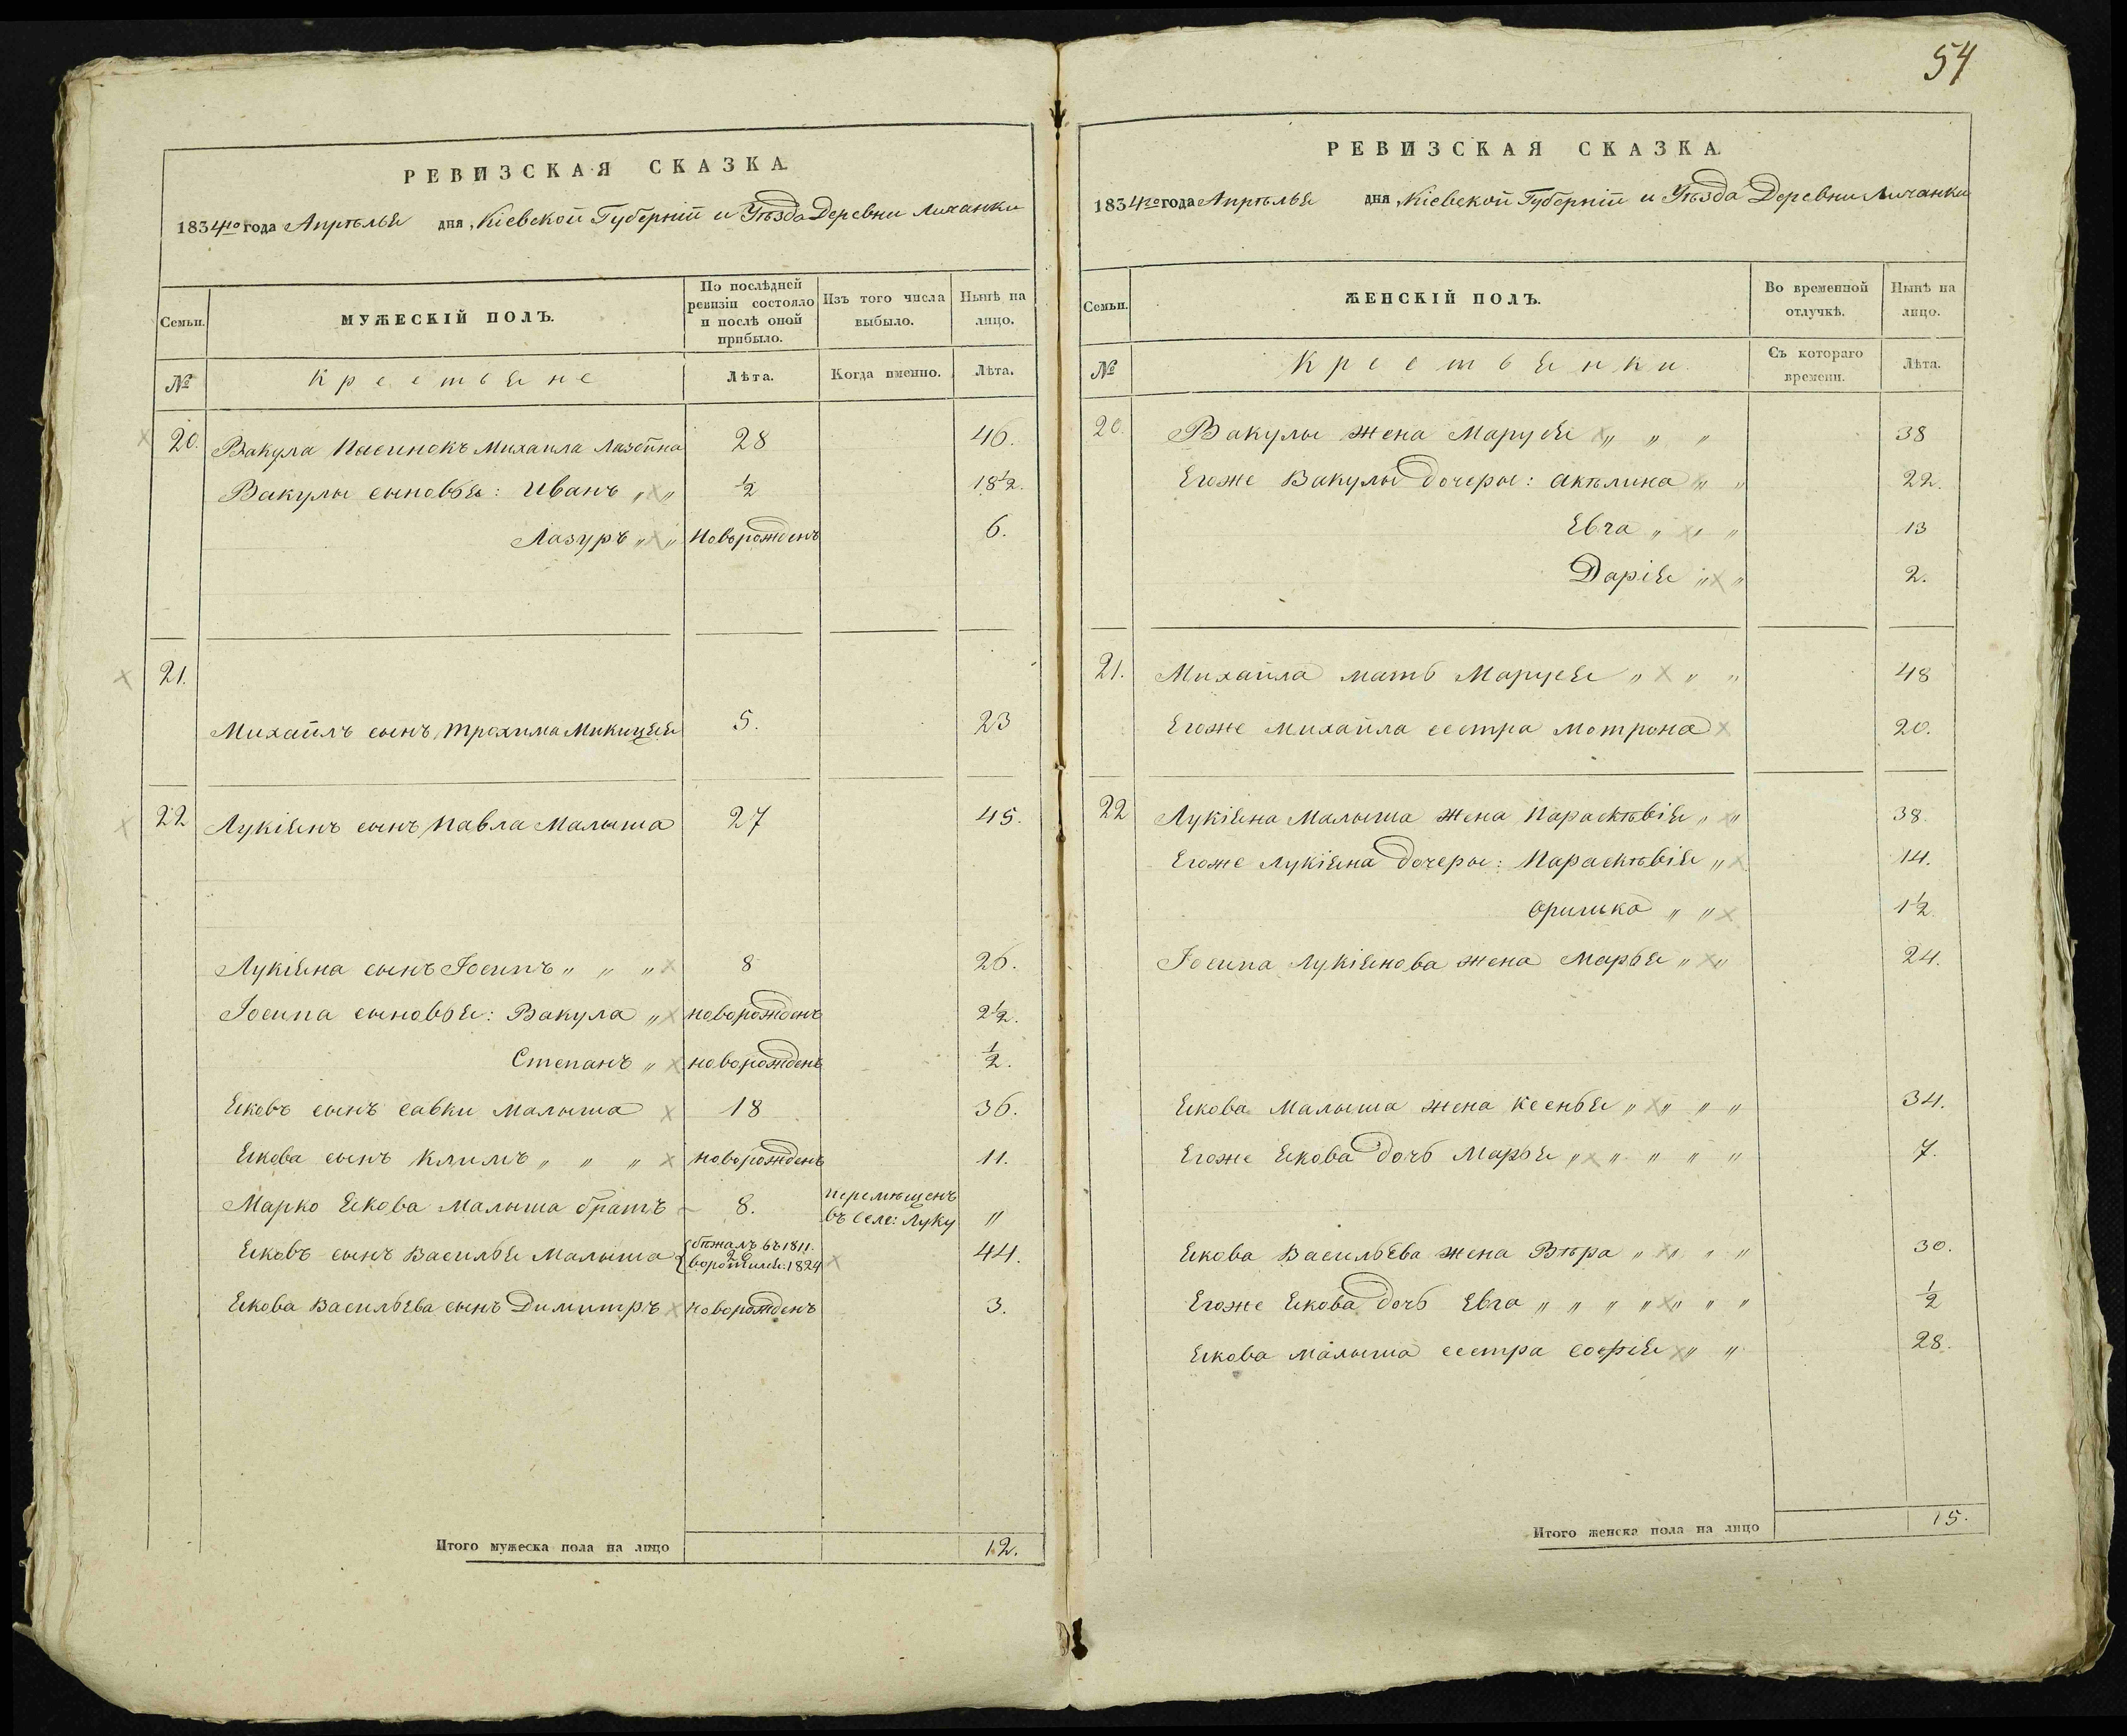 54
РЕВИЗСКАЯ СКАЗКА
1834го года Апрѣля дня, Кіевской Губерніи и Уѣзда Деревни Личанки
Семьи. МУЖЕСКІЙ ПОЛЪ. По послѣдней ревизіи состояло и послѣ оной прибыло. Изъ того числа выбыло. Нынѣ на лицо.
№ Крестьяне Лѣта. Когда именно. Лѣта.
20. Вакула Пасинокъ Михаила 28 46.
Вакулы сыновья: Иванъ „ „ ½ 18½.
Лазуръ „ „ новорожденъ 6.
21.
Михайлъ сынъ Трохима 5. 23
22 Лукіянъ сынъ Павла Малыша 27 45.
Лукіяна сынъ Іосипъ „ „ „ 8 26.
Іосипа сыновья: Вакула „ новорожденъ 2½.
Степанъ „ новорожденъ ½.
Яковъ сынъ Савки Малыша 18 36.
Якова сынъ Климъ „ „ „ новорожденъ 11.
Марко Якова Малыша братъ 8. перемѣщенъ въ селе: Луку „
Яковъ сынъ Василья Малыша бѣжалъ въ 1811. 26 1824 44.
Якова Васильева сынъ Димитръ новорожденъ 3.
Итого мужеска пола на лицо 12.
РЕВИЗСКАЯ СКАЗКА
1834го года Апрѣля дня, Кіевской Губерніи и Уѣзда Деревни Личанки
Семьи. ЖЕНСКІЙ ПОЛЪ. Во временной отлучкѣ. Нынѣ на лицо.
№ Крестьянки. Съ котораго времени. Лѣта.
20. Вакулы жена Маруся „ „ „ 38
Егоже Вакулы дочеры: Акѣлина „ „ 22.
Евга „ „ „ 13
Дарія „ „ 2.
21. Михайла мать Маруся „ „ „ 48
Егоже Михайла сестра Мотрона 20.
22 Лукіяна Малыша жена Параскѣвія „ „ 38.
Егоже Лукіяна дочеры: Параскѣвія „ 14.
Оришка „ „ 1½.
Іосипа Лукіянова жена Марья „ „ 24.
Якова Малыша жена Ксенья „ „ „ „ 34.
Егоже Якова дочь Марья „ „ „ „ „ 7.
Якова Васильева жена Вѣра „ „ „ „ 30.
Егоже Якова дочь Евга „ „ „ „ „ „ „ ½
Якова Малыша сестра Софія „ „ 28.
Итого женска пола на лицо 15.